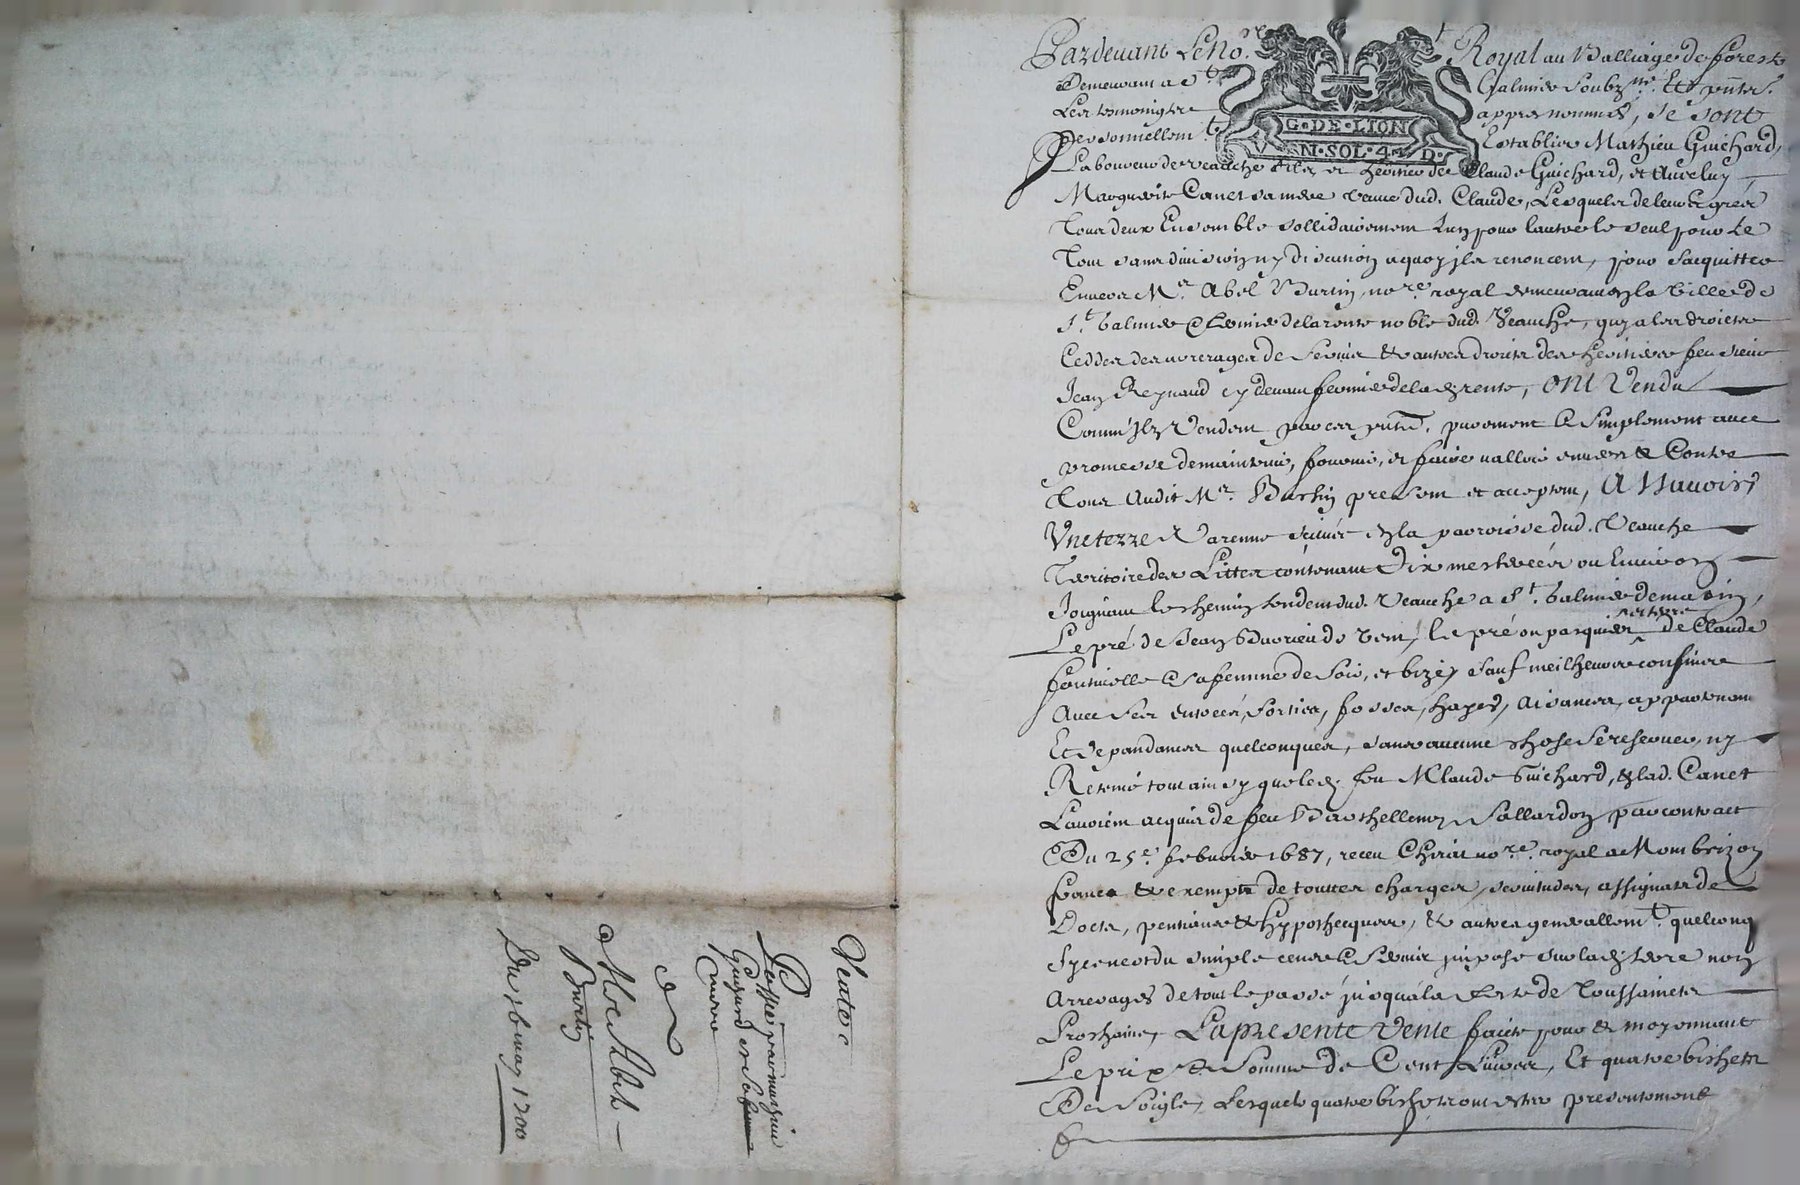 Pardevant Le No.re Royal au Balliage de forest
Demeurant a S.t Galmier soubz.né Et pnts.
Les tesmoingtz appres nommés, se sont
Personnellem.t Establis Mathieu Guichard,
Laboureur de Veauche filz et heritier de Claude Guichard, et Avecluy
Margueritte Canet sa mere veuve dud. Claude, Lesquels de leurs grés
Tous deux Ensemble sollidairement Lun pour lautre le seul pour Le
Tout sans division ny discution a quoy jls renoncent, pour sacquitter
Envers M.e Abel Burtin, no.re royal demeurant en la ville de
S.t Galmier & fermier de la rente noble dud. Veauche, qui a les droicts
Ceddés des arrerages de servis & autres droits des heritiers feu sieur
Jean Reynaud cy devant fermier de lad. rente, ONt Vendu
Comm'Jlz Vendent par ces pntes, purement & simplement avec
promesse de maintenir, fournir, et faire valloir envers & Contre
Tous Audit M.e Burtin present et acceptent, ASsavoir,
Vne terre & Varenne scituée en la parroisse dud. Veauche
Territoire des Littes contenant Dix mesterées ou Environ
Joignant le chemin tendent dud. Veauche a S.t Galmier de matin,
Le pré de Jean de vent, le pré ou pasquier et terre de Claude
& sa femme de soir, et bize, sauf meilheurs confins
Avec ses entrées, sorties, fosses, hayes, aisances, appartenan
Et dependances quelconques, sans aucune chose se reserver, ny
Retenir tout ainsy que led. feu Claude Guichard, & lad. Canet
Lavoient acquis de feu Barthellemy Sollardon par contract
Du 25.e febvrier 1687, receu no.re royal a Montbrizon
franc & exempte de touttes charges, servitudes, assignats de
Docts, pentions & hyppothecques, & autres generallem.t quelconq
Sy ce nest du simple cens & servis jmposé sur lad. terre non
Arrerages de tout le passé jusqua la feste de Toussaincts
Prochaine, La presente Vente faicte pour & moyennant
Le prix & somme de Cent Livres, Et quatre bichets
De Soigle, Lesquels quatre bichets ont estés presentement
&
G·DE·LION
VN·SOL·4·D·
Vente
Passée par mathieu
Guichard et sa
mere
A
Me Abel
Burtin
Du 1700